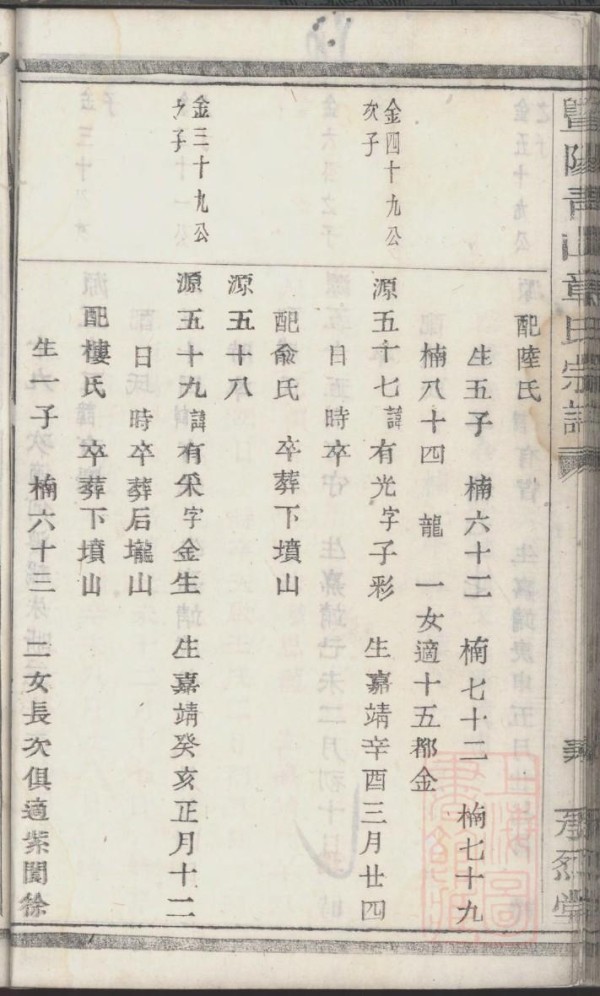 暨陽青山章氏宗譜
配陸氏
生五子 楠六十二 楠七十二 楠七十九
楠八十四 龍 一女適十五都金
金四十九公
次子
源五十七諱有光字子彩 生嘉靖辛酉三月廿四
日時卒
配俞氏 卒葬下墳山
源五十八
金三十九公
之子
源五十九諱有采字金生 生嘉靖癸亥正月十二
日時卒葬后壠山
配樓氏 卒葬下墳山
生一子 楠六十三 二女長次俱適紫閬徐